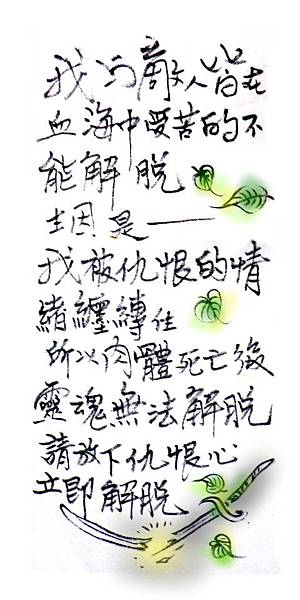 我与敵人皆在
血海中受苦的不
能解脫
主因是——
我被仇恨的情
緒纏縛住
所以肉體死亡後
靈魂無法解脫
請放下仇恨心
立即解脫